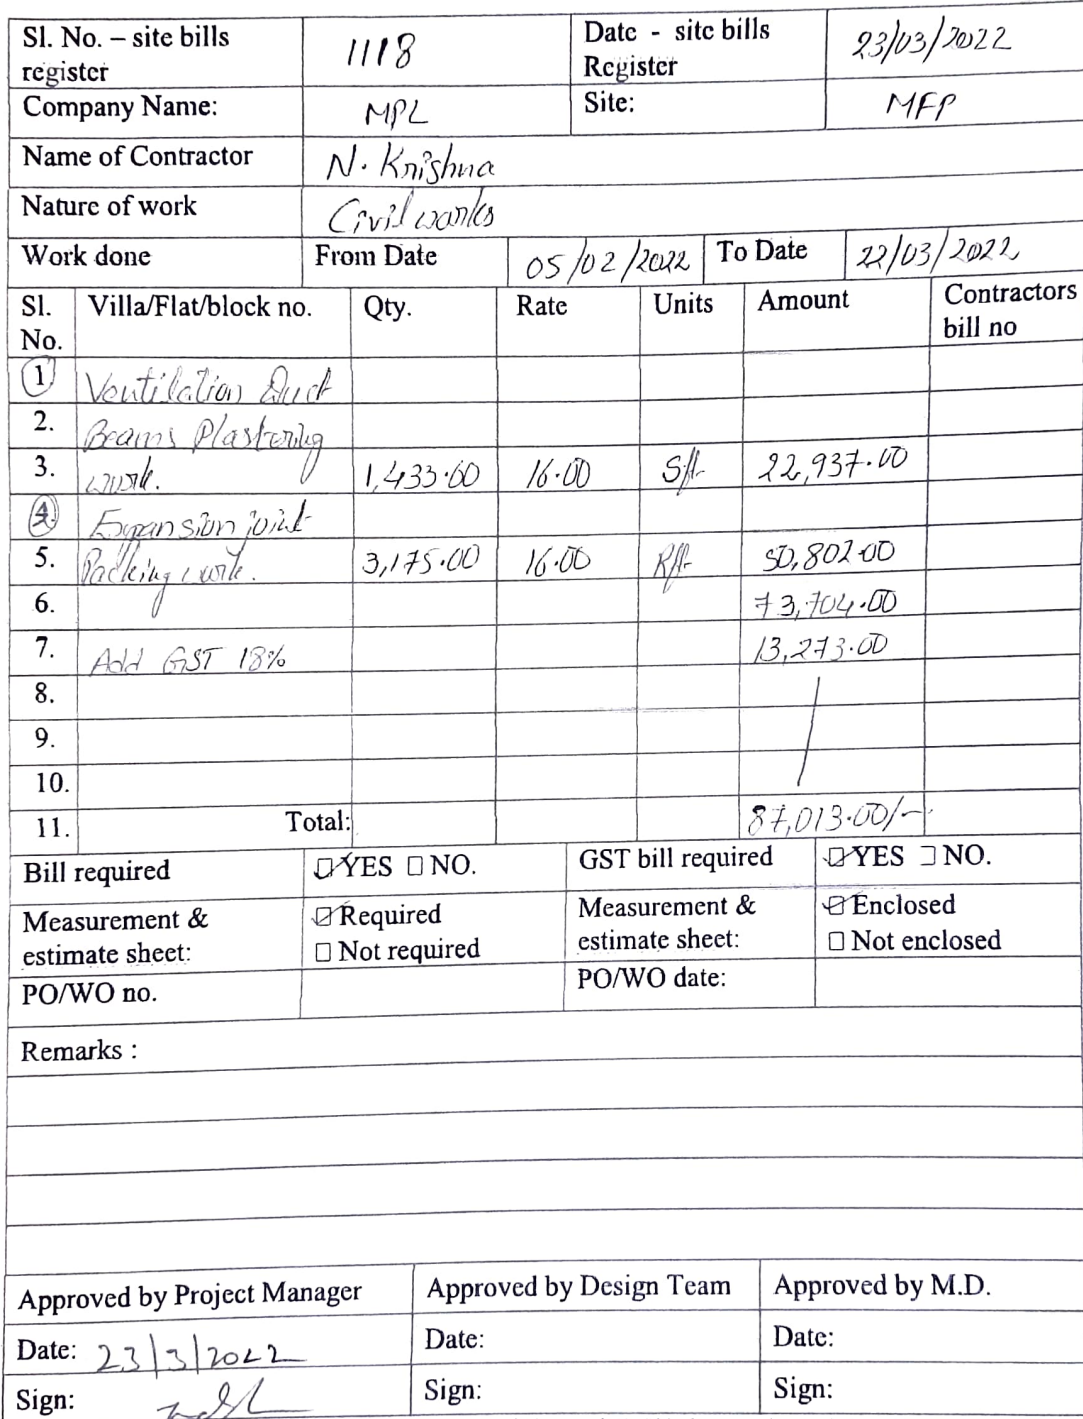 Sl. No. – site bills register 1118 Date - site bills Register 23/03/2022
Company Name: MPL Site: MFP
Name of Contractor N. Krishna
Nature of work Civil works
Work done From Date 05/02/2022 To Date 22/03/2022
Sl. No. Villa/Flat/block no. Qty. Rate Units Amount Contractors bill no
1 Ventilation Duct
2. Beams Plastering
3. work. 1,433.60 16.00 Sft 22,937.00
4 Expansion joint
5. Packing work. 3,175.00 16.00 Rft 50,802.00
6. 73,704.00
7. Add GST 18% 13,273.00
8.
9.
10.
11. Total: 87,013.00/-
Bill required YES NO. GST bill required YES NO.
Measurement & estimate sheet: Required Not required Measurement & estimate sheet: Enclosed Not enclosed
PO/WO no. PO/WO date:
Remarks :
Approved by Project Manager Approved by Design Team Approved by M.D.
Date: 23/3/2022 Date: Date:
Sign: Sign: Sign: